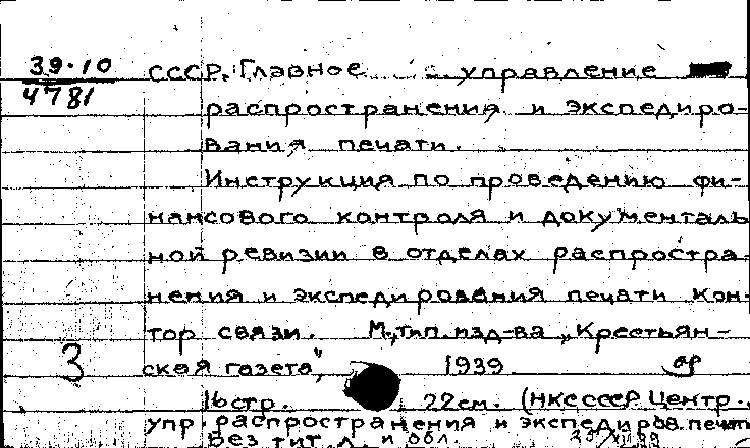 39-10
4781
СССР. Главное управление
распространения и экспедиро-
вания печати.
Инструкция по проведению фи-
нансового контроля и документаль
ной ревизии в отделах распростра-
нения и экспедирования печати кон-
тор связи. М., тип. изд-ва „Крестьян-
ская газета",
1939
3
16 стр. 22 см. (НКС СССР Центр.
упр. распространения и экспедиров. печати
Без тит. л. и обл.